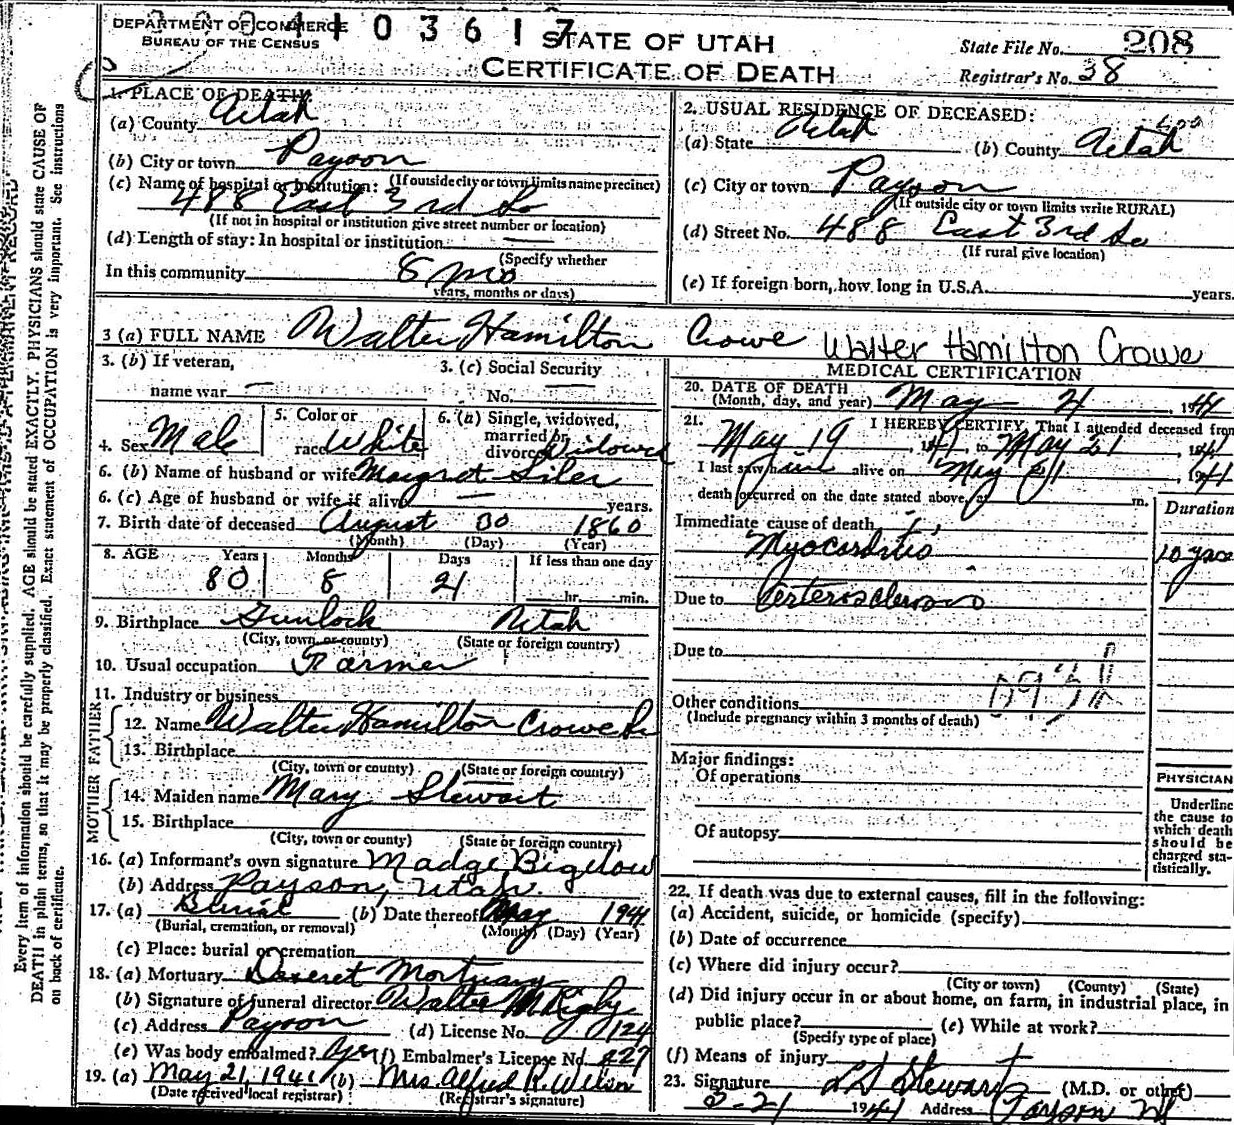 DEPARTMENT OF COMMERCE
BUREAU OF THE CENSUS
1 0 3 6 1 7
STATE OF UTAH
CERTIFICATE OF DEATH
State File No. 208
Registrar's No. 38
1. PLACE OF DEATH:
(a) County Utah
(b) City or town Payson
(If outside city or town limits name precinct)
(c) Name of hospital or institution:
488 East 3rd So
(If not in hospital or institution give street number or location)
(d) Length of stay: In hospital or institution
(Specify whether
In this community 8 mo
years, months or days)
2. USUAL RESIDENCE OF DECEASED:
(a) State Utah (b) County Utah
(c) City or town Payson
(If outside city or town limits write RURAL)
(d) Street No. 488 East 3rd So
(If rural give location)
(e) If foreign born, how long in U.S.A. years.
3 (a) FULL NAME Walter Hamilton Crowe Walter Hamilton Crowe
3. (b) If veteran,
name war
3. (c) Social Security
No.
4. Sex Male
5. Color or
race White
6. (a) Single, widowed,
married or
divorced Widowed
6. (b) Name of husband or wife Margret Siler
6. (c) Age of husband or wife if alive years.
7. Birth date of deceased August 30 1860
(Month) (Day) (Year)
8. AGE Years Months Days If less than one day
80 8 21 hr. min.
9. Birthplace Gunlock Utah
(City, town, or county) (State or foreign country)
10. Usual occupation Farmer
11. Industry or business
FATHER
12. Name Walter Hamilton Crowe Sr
13. Birthplace
(City, town or county) (State or foreign country)
MOTHER
14. Maiden name Mary Stewart
15. Birthplace
(City, town or county) (State or foreign country)
16. (a) Informant's own signature Madge Bigelow
(b) Address Payson, Utah.
17. (a) Burial (b) Date thereof May 1941
(Burial, cremation, or removal) (Month) (Day) (Year)
(c) Place: burial or cremation
18. (a) Mortuary Deseret Mortuary
(b) Signature of funeral director Walter M Rigby
(c) Address Payson (d) License No. 124
(e) Was body embalmed? Yes (f) Embalmer's License No. 427
19. (a) May 21, 1941 (b) Mrs. Alfred R. Wilson
(Date received local registrar) (Registrar's signature)
MEDICAL CERTIFICATION
20. DATE OF DEATH
(Month, day, and year) May 21, 1941
21. I HEREBY CERTIFY, That I attended deceased from
May 19, 1941, to May 21, 1941
I last saw him alive on May 21, 1941
death occurred on the date stated above, at m.
Duration
Immediate cause of death
Myocarditis 10 years
Due to Arterosclerosis
Due to
Other conditions
(Include pregnancy within 3 months of death)
Major findings:
Of operations
Of autopsy
PHYSICIAN
Underline
the cause to
which death
should be
charged sta-
tistically.
22. If death was due to external causes, fill in the following:
(a) Accident, suicide, or homicide (specify)
(b) Date of occurrence
(c) Where did injury occur?
(City or town) (County) (State)
(d) Did injury occur in or about home, on farm, in industrial place, in
public place? (e) While at work?
(Specify type of place)
(f) Means of injury
23. Signature L D Stewart (M.D. or other)
5-21 1941 Address Payson Ut
Every item of information should be carefully supplied. AGE should be stated EXACTLY. PHYSICIANS should state CAUSE OF
DEATH in plain terms, so that it may be properly classified. Exact statement of OCCUPATION is very important. See instructions
on back of certificate.